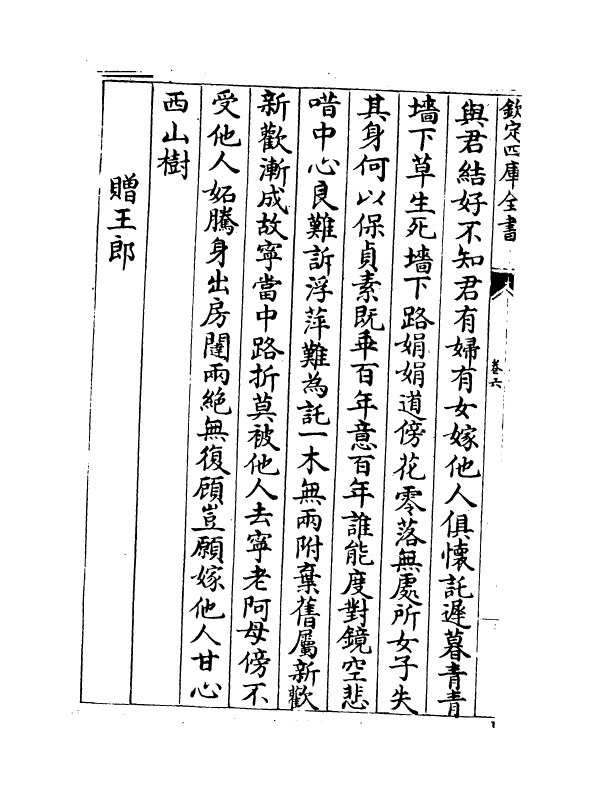 欽定四庫全書
卷六
與君結好不知君有婦有女嫁他人俱懷託遲暮青青
墻下草生死墻下路娟娟道傍花零落無處所女子失
其身何以保貞素既乖百年意百年誰能度對鏡空悲
唶中心良難訴浮萍難為託一木無兩附棄舊屬新歡
新歡漸成故寧當中路折莫被他人去寧老阿母傍不
受他人妬騰身出房闥兩絶無復顧豈願嫁他人甘心
西山樹
贈王郎